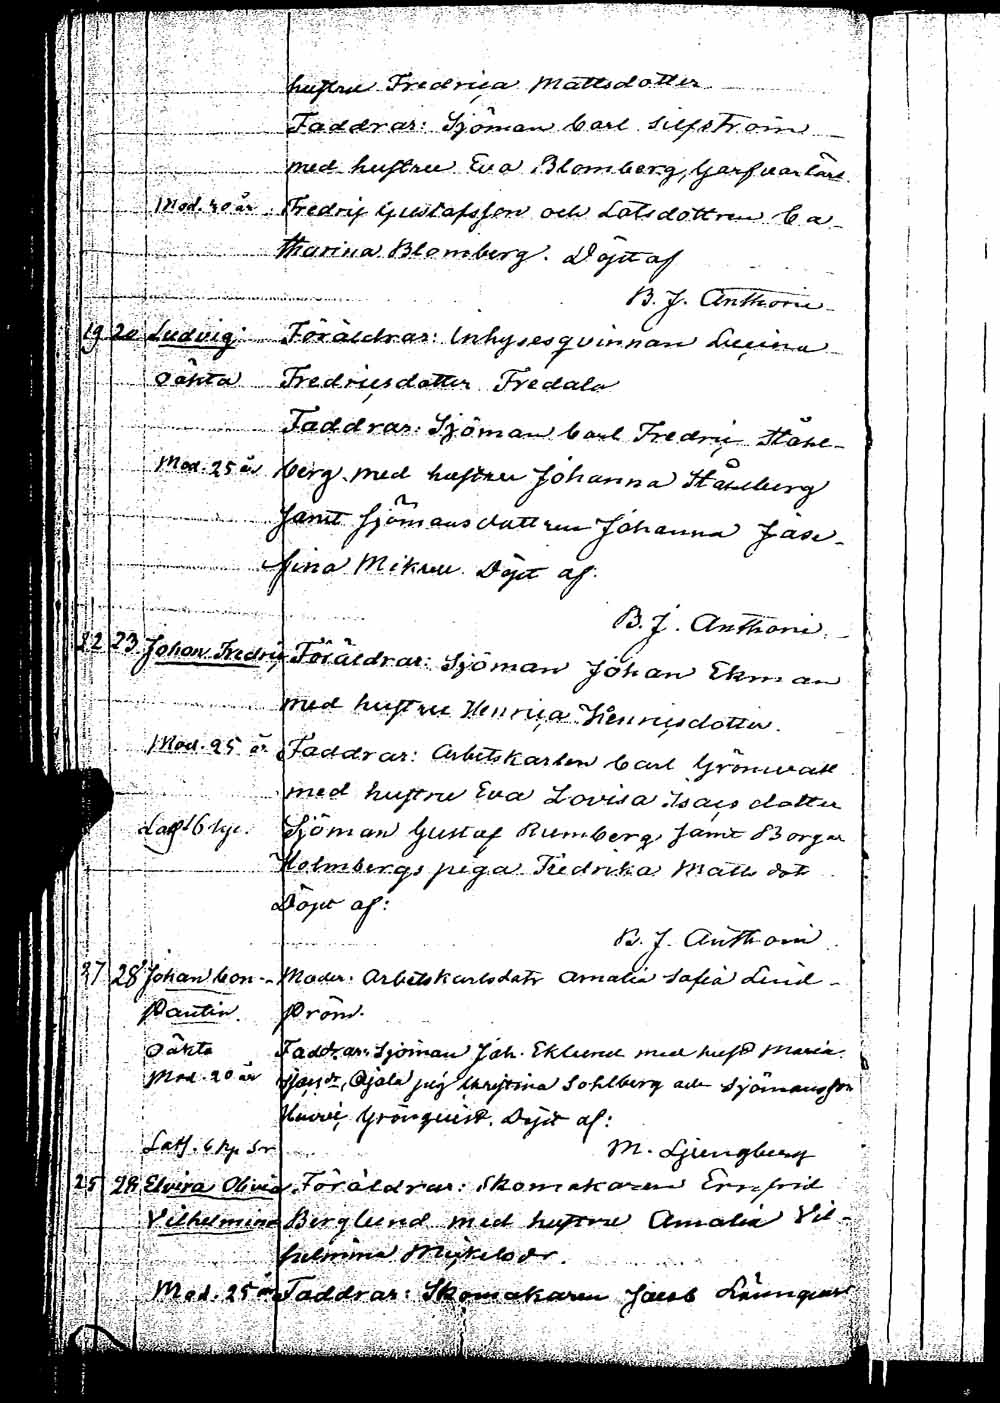 hustru Fredrica Mattsdotter
Faddrar: Sjöman Carl Silfström
med hustru Eva Blomberg, Garfvarlärl.
Mod. 40 år Fredric Gustafsson och Lotsdottren Ca-
tharina Blomberg. Döpt af
B. J. Anthoni
19 20 Ludvig Föräldrar: Inhysesqvinnan Lucina
oäkta Fredricsdotter Fredala
Faddrar: Sjöman Carl Fredric Ståhl-
Mod. 25 år berg med hustru Johanna Ståhlberg
samt sjömansdottren Johanna Jose-
fina Mikru. Döpt af:
B. J. Anthoni
22 23 Johan Fredric Föräldrar: Sjöman Johan Ekman
med hustru Henrica Henricsdotter.
Mod. 25 år Faddrar: Arbetskarlen Carl Grönvall
med hustru Eva Lovisa Isacsdotter
Sjöman Gustaf Rumberg samt Borgar
Holmbergs piga Fredrika Mattsdotr
Döpt af:
B. J. Anthoni
27 28 Johan Con- Moder: Arbetskarlsdotr Amalia Sofia Lind-
stantin. ström.
oäkta Faddrar: Sjöman Joh. Eklund med hust Maria
Mod. 20 år pig Christina Sohlberg och Sjömansson
Henric Grönquist. Döpt af:
M. Ljungberg
25 28 Elvira Olivia Föräldrar: Skomakaren Ernfrid
Vilhelmina Berglund med hustru Amalia Vil-
helmina Mickelsdr.
Mod. 25 år Faddrar: Skomakaren Jacob Lönnqvist